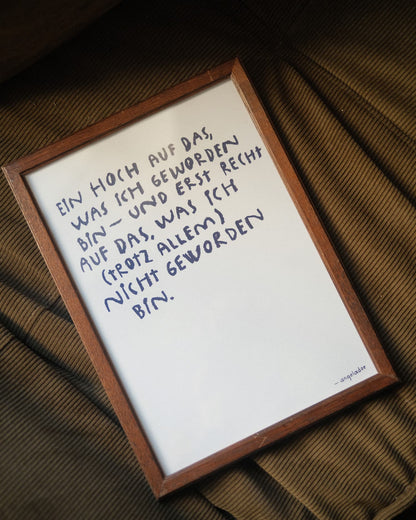 EIN HOCH AUF DAS,
WAS ICH GEWORDEN
BIN – UND ERST RECHT
AUF DAS, WAS ICH
(TROTZ ALLEM)
NICHT GEWORDEN
BIN.
– angelador